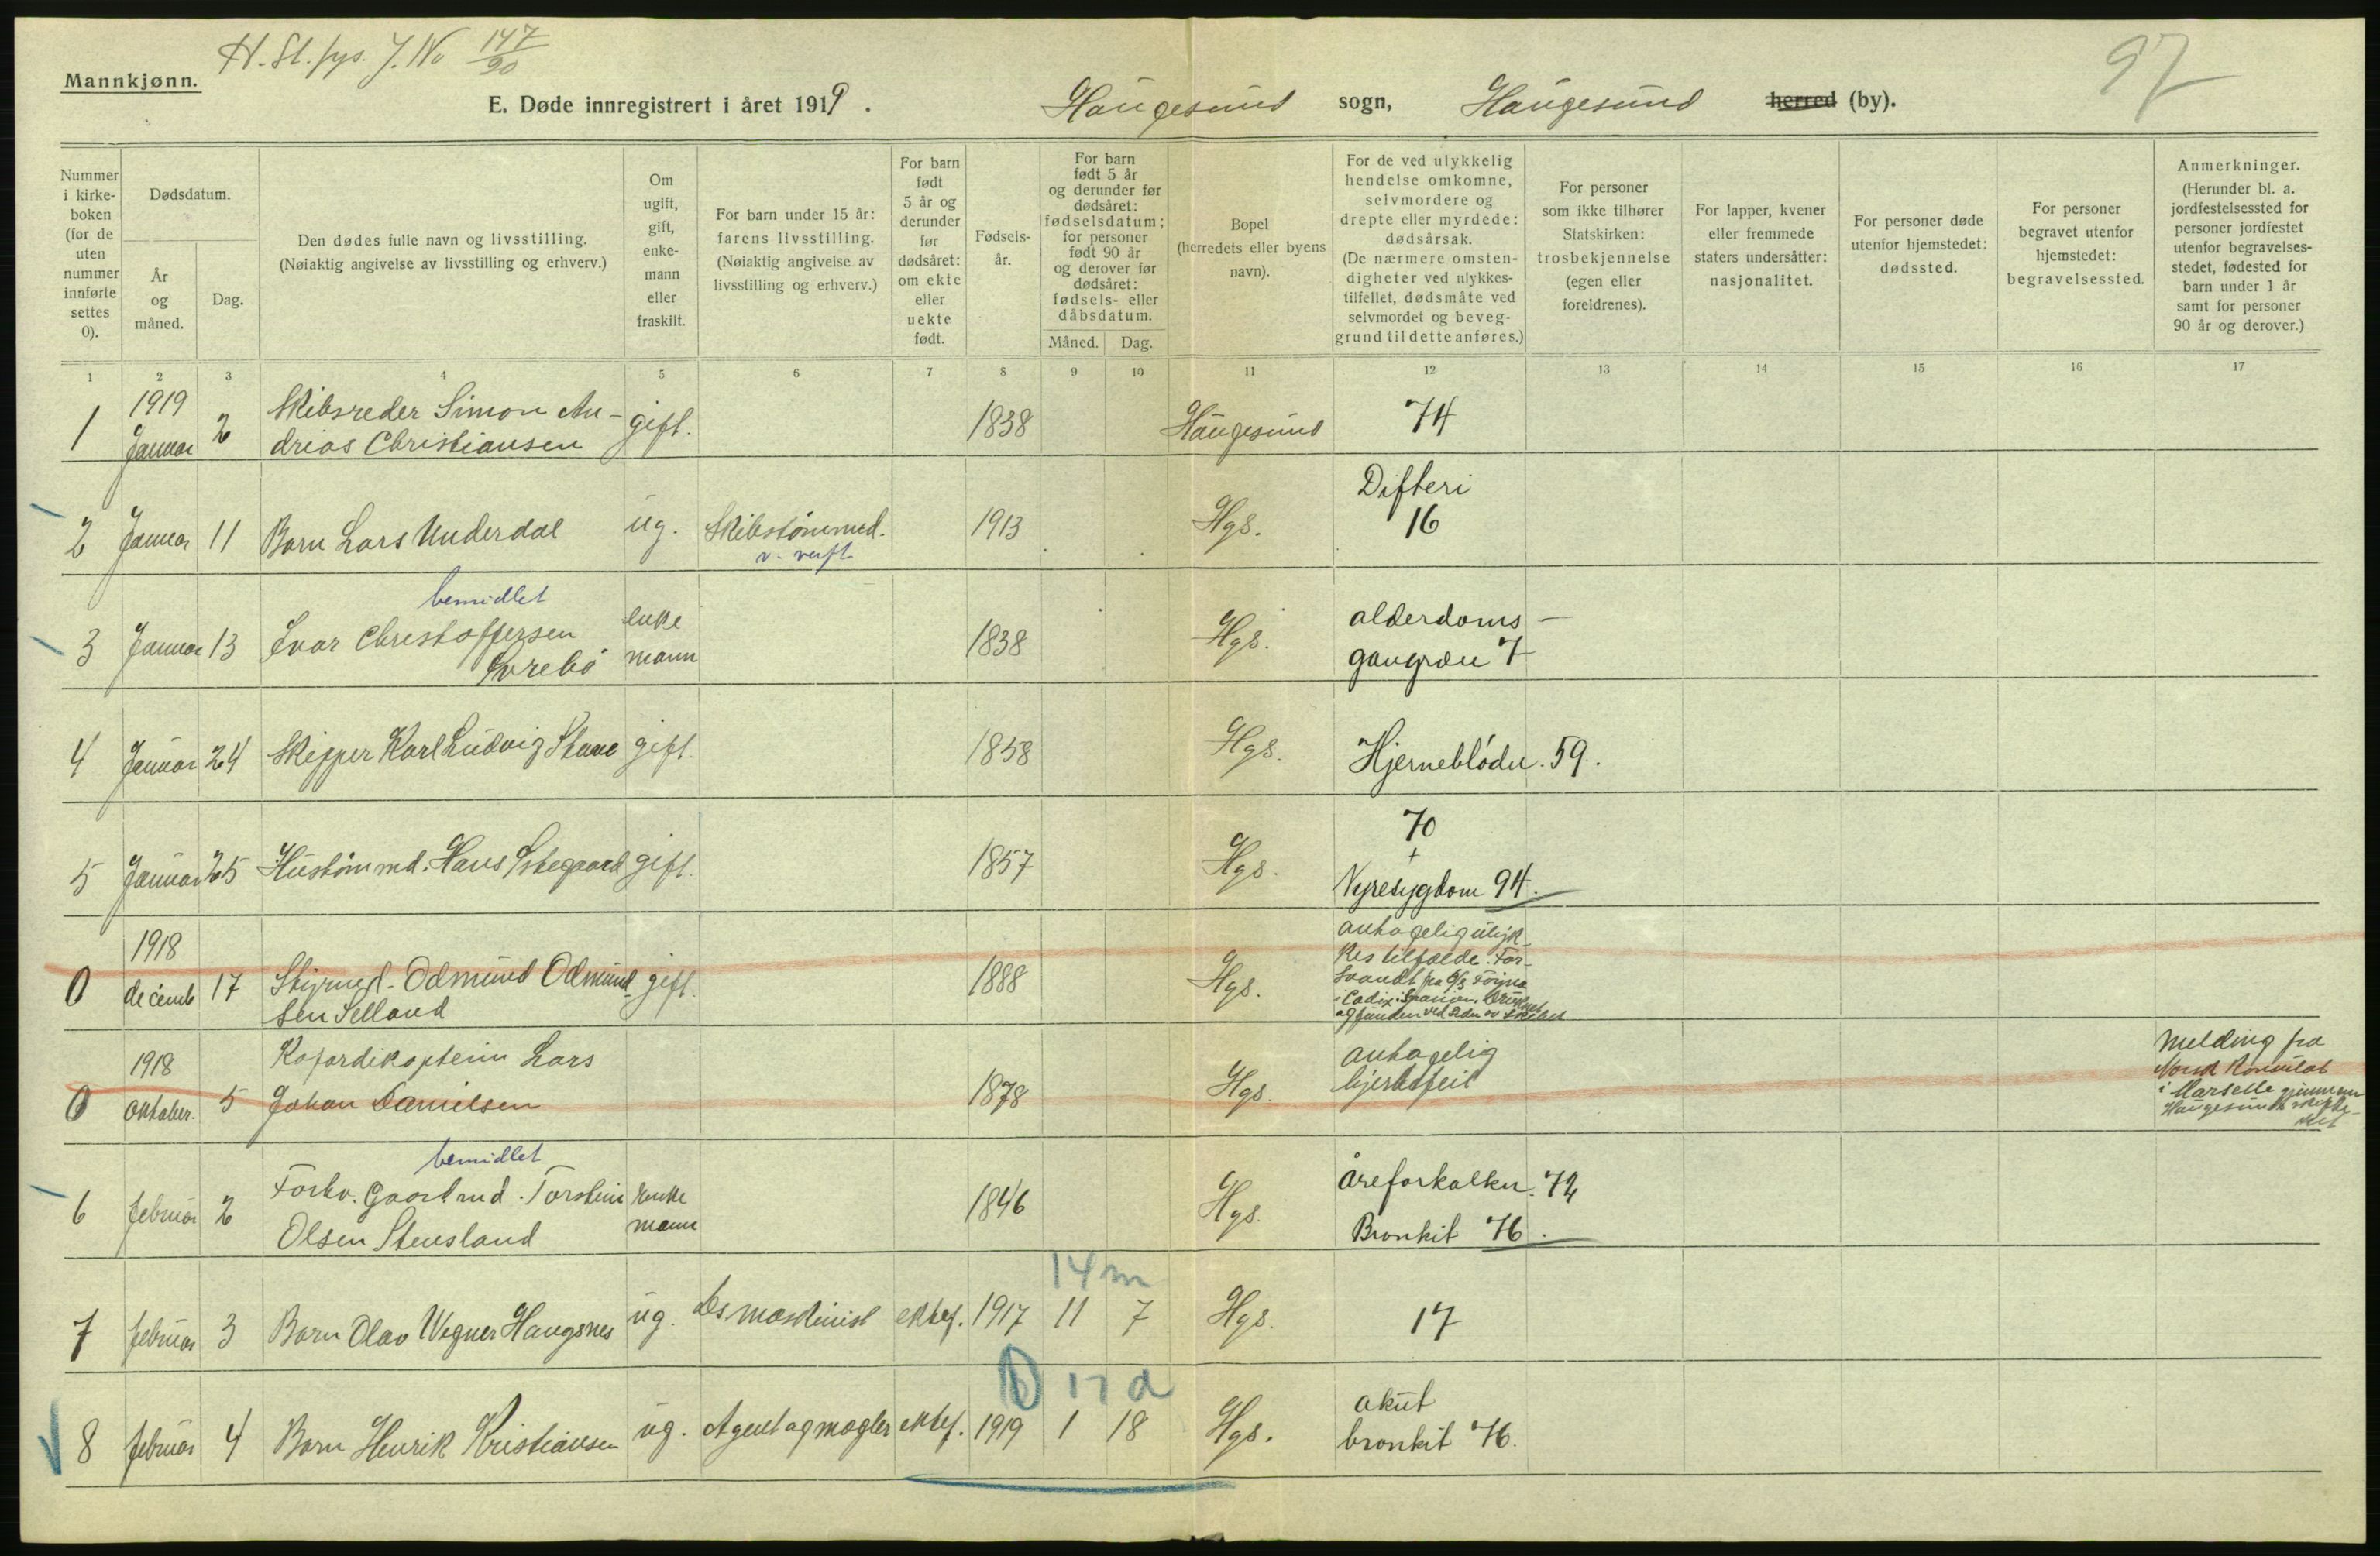 H. St. fys. J. No 147/20
97
Mannkjønn.
E. Døde innregistrert i året 1919. Haugesund sogn, Haugesund herred (by).
Nummer i kirke-boken (for de uten nummer innførte settes 0).
Dødsdatum.
År og måned.
Dag.
Den dødes fulle navn og livsstilling.
(Nøiaktig angivelse av livsstilling og erhverv.)
Om ugift, gift, enke-mann eller fraskilt.
For barn under 15 år: farens livsstilling.
(Nøiaktig angivelse av livsstilling og erhverv.)
For barn født 5 år og derunder før dødsåret: om ekte eller uekte født.
Fødsels-år.
For barn født 5 år og derunder før dødsåret: fødselsdatum; for personer født 90 år og derover før dødsåret: fødsels- eller dåbsdatum.
Måned. Dag.
Bopel (herredets eller byens navn).
For de ved ulykkelig hendelse omkomne, selvmordere og drepte eller myrdede: dødsårsak.
(De nærmere omsten-digheter ved ulykkes-tilfellet, dødsmåte ved selvmordet og beveg-grund til dette anføres.)
For personer som ikke tilhører Statskirken: trosbekjennelse (egen eller foreldrenes).
For lapper, kvener eller fremmede staters undersåtter: nasjonalitet.
For personer døde utenfor hjemstedet: dødssted.
For personer begravet utenfor hjemstedet: begravelsessted.
Anmerkninger.
(Herunder bl. a. jordfestelsessted for personer jordfestet utenfor begravelses-stedet, fødested for barn under 1 år samt for personer 90 år og derover.)
1 2 3 4 5 6 7 8 9 10 11 12 13 14 15 16 17
1 1919 Januar 2 Skibsreder Simon An-drias Christiansen gift. 1838 Haugesund 74
2 Januar 11 Barn Lars Underdal ug. Skibstømmed. v. verft 1913 Hgs. Difteri 16
3 Januar 13 bemidlet Ivar Christoffersen enke mann 1838 Hgs. alderdoms-gangræn 7
4 Januar 24 Skipper Karl Ludvig Stave gift. 1858 Hgs. Hjerneblødn. 59.
5 Januar 25 Hustømmd. Hans gift. 1857 Hgs. 70 + Nyresygdom 94.
0 1918 decemb 17 Styrmd. Odmund Odmund-sen Selland gift. 1888 Hgs. antagelig ulyk-kes tilfælde. For-svandt fra i Cadix Spanien. og funden ved siden av skibet
0 1918 oktober. 5 Kofardikaptein Lars Johan Danielsen 1878 Hgs. antagelig hjertefeil Melding fra Norsk Konsulat i Marseille gjennem Haugesunds
6 februar 2 bemidlet Forhv. Gaardmd. Torstein Olsen Stensland enke mann 1846 Hgs. åreforkalkn. 72 Bronkit 76.
7 februar 3 Barn Olav Wegner Haugsnes ug. Ds maskinist ektef. 1917 11 7 14 m Hgs. 17
8 februar 4 Barn Henrik Kristiansen ug. Agent og mægler ektef. 1919 1 18 17 d Hgs. akut bronkit 76.